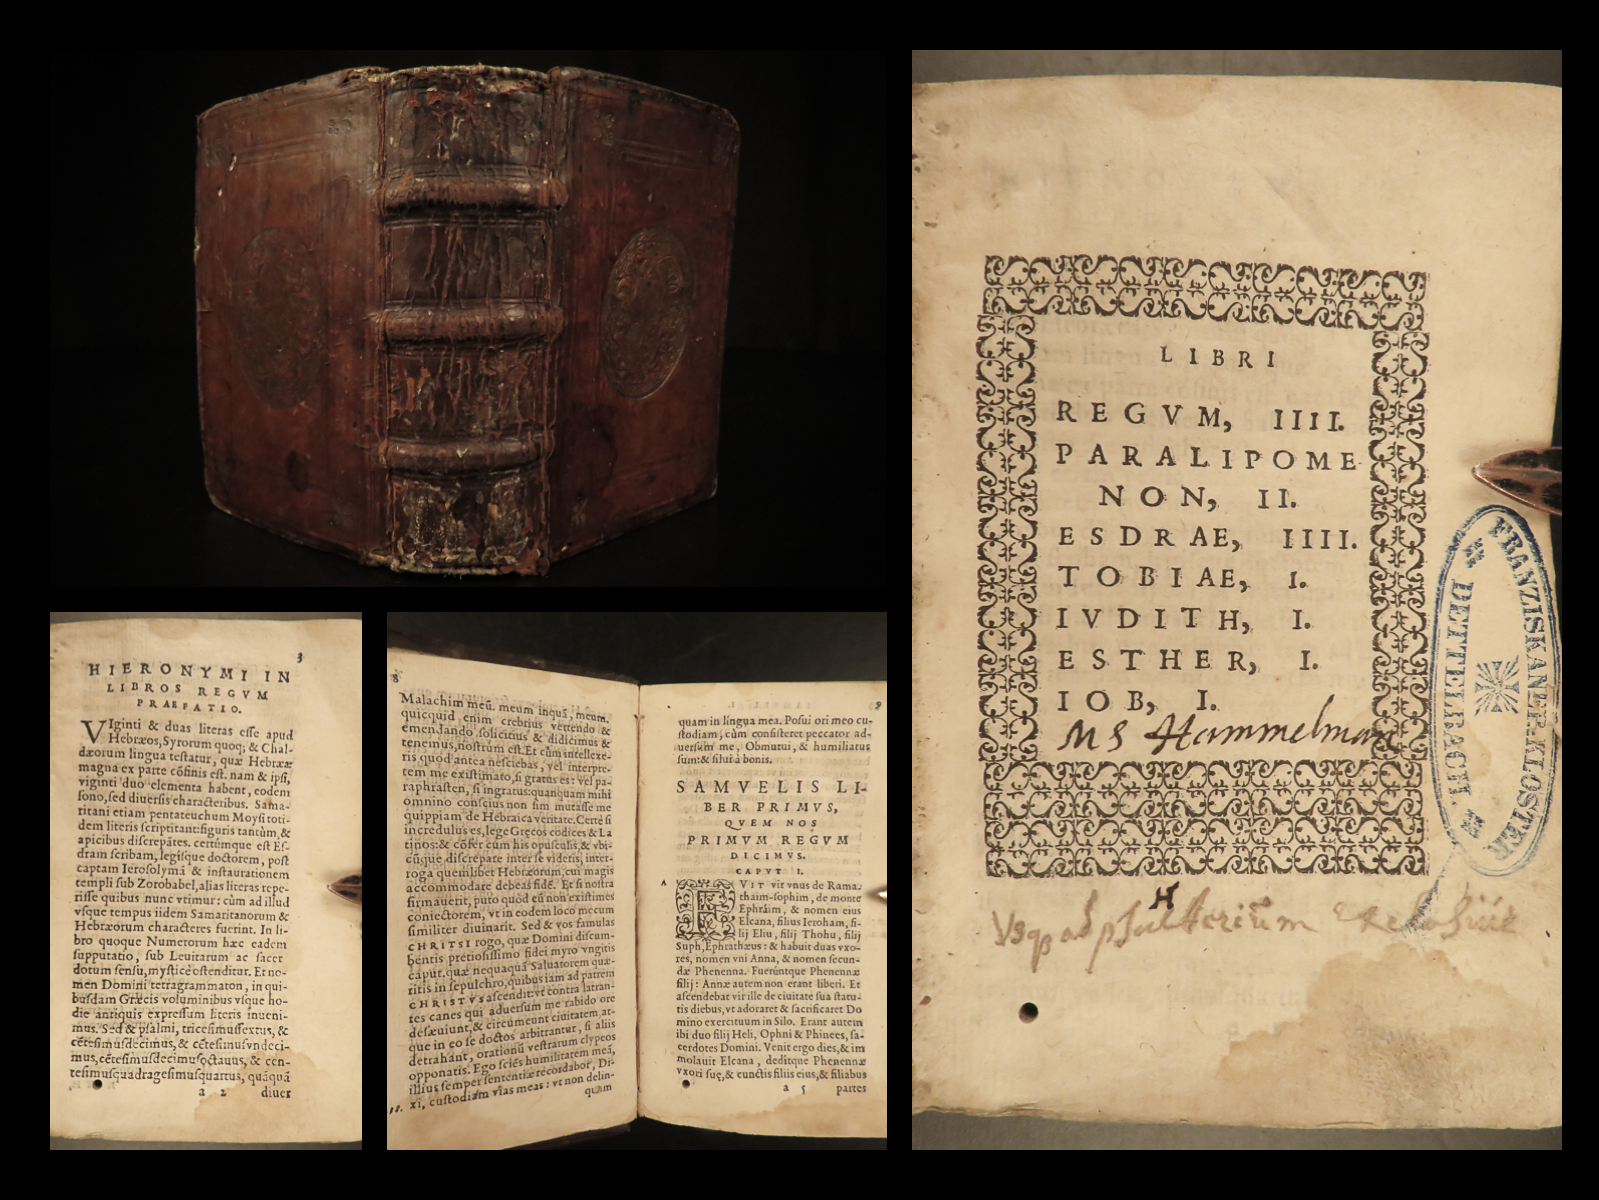 LIBRI
REGVM, IIII.
PARALIPOME
NON, II.
ESDRAE, IIII.
TOBIAE, I.
IVDITH, I.
ESTHER, I.
IOB, I.
MS Hammelman
H
Vsq ad psalterium
FRANZISKANER-KLOSTER
DETTELBACH.
3
HIERONYMI IN
LIBROS REGVM
PRAEFATIO.
VIginti & duas literas esse apud
Hebræos, Syrorum quoq; & Chal-
dæorum lingua testatur, quæ Hebrææ
magna ex parte cõfinis est. nam & ipsi,
viginti duo elementa habent, eodem
sono, sed diuersis characteribus. Sama-
ritani etiam pentateuchum Moysi toti-
dem literis scriptitant: figuris tantùm, &
apicibus discrepãtes. certúmque est Es-
dram scribam, legisque doctorem, post
captam Ierosolymã & instaurationem
templi sub Zorobabel, alias literas repe-
risse quibus nunc vtimur: cùm ad illud
vsque tempus iidem Samaritanorum &
Hebræorum characteres fuerint. In li-
bro quoque Numerorum hæc eadem
supputatio, sub Leuitarum ac sacer
dotum sensu, mysticè ostenditur. Et no-
men Domini tetragrammaton, in qui-
busdam Græcis voluminibus vsque ho-
die antiquis expressum literis inueni-
mus. Sed & psalmi, tricesimussextus, &
cẽtesimusdecimus, & cẽtesimusvndeci-
mus, cẽtesimusdecimusoctauus, & cen-
tesimusquadragesimusquartus, quãquã
a 2 diuer
8
Malachim meũ. meum inquã, meum.
quicquid enim crebrius vertendo &
emendando solicitius & didicimus &
tenemus, nostrum est. Et cùm intellexe-
ris quod antea nesciebas, vel interpre-
tem me existimato, si gratus es: vel pa-
raphrasten, si ingratus: quanquam mihi
omnino conscius non sim mutasse me
quippiam de Hebraica veritate. Certè si
incredulus es, lege Græcos codices & La
tinos: & cõfer cum his opusculis, & vbi-
cũque discrepare inter se videris, inter-
roga quemlibet Hebræorum, cui magis
accommodare debeas fidẽ. Et si nostra
firmauerit, puto quòd eũ non existimes
coniectorem, vt in eodem loco mecum
similiter diuinarit. Sed & vos famulas
CHRITSI rogo, quæ Domini discum-
bentis pretiosissimo fidei myro vngitis
caput. quæ nequaquã Saluatorem quæ-
ritis in sepulchro, quibus iam ad patrem
CHRISTVS ascendit: vt contra latran-
tes canes qui aduersum me rabido ore
desæuiunt, & circumeunt ciuitatem, at-
que in eo se doctos arbitrantur, si aliis
detrahãnt, orationũ vestrarum clypeos
opponatis. Ego sciẽs humilitatem meã,
illius semper sententiæ recordabor, Di-
xi, custodiam vias meas: vt non delin-
quam
9
quam in lingua mea. Posui ori meo cu-
stodiam, cùm consisteret peccator ad-
uersùm me, Obmutui, & humiliatus
sum: & silui à bonis.
SAMVELIS LI-
BER PRIMVS,
QVEM NOS
PRIMVM REGVM
DICIMVS.
CAPVT I.
A
FVIT vir vnus de Rama-
thaim-sophim, de monte
Ephráim, & nomen eius
Elcana, filius Ieroham, fi-
lij Eliu, filij Thohu, filij
Suph, Ephrathæus: & habuit duas vxo-
res, nomen vni Anna, & nomen secun-
dæ Phenenna. Fuerúntque Phenennæ
filij: Annæ autem non erant liberi. Et
ascendebat vir ille de ciuitate sua statu-
tis diebus, vt adoraret & sacrificaret Do
mino exercituum in Silo. Erant autem
ibi duo filij Heli, Ophni & Phinees, sa-
cerdotes Domini. Venit ergo dies, & im
molauit Elcana, deditque Phenennæ
vxori suę, & cunctis filiis eius, & filiabus
a 5 partes